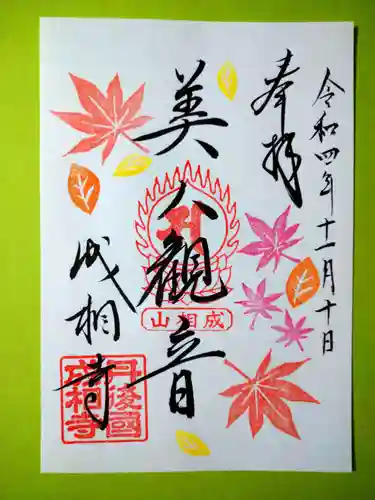 令和四年十一月十日
奉拝
美人観音
成相寺
成相山
丹後國
成相寺